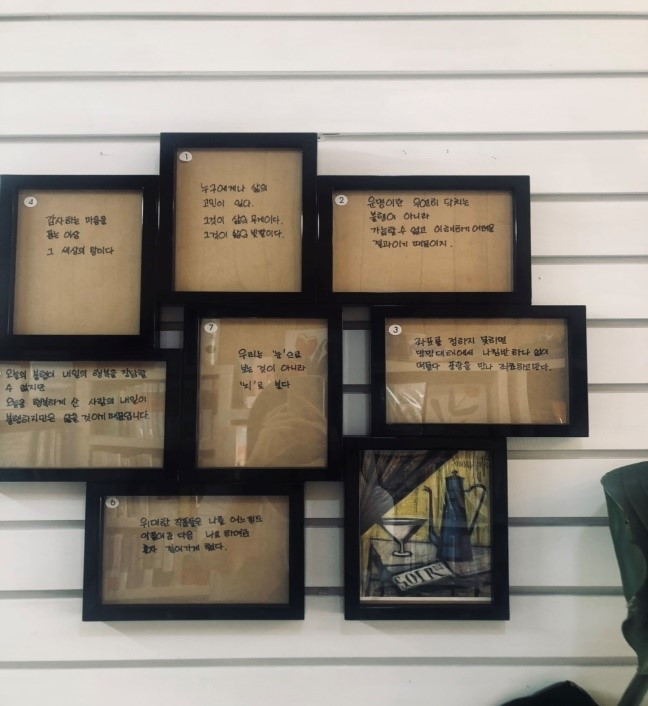 1
누구에게나 삶의
고민이 있다.
그것이 삶의 무게이다.
그것이 삶의 빛깔이다.
2
운명이란 우연히 닥치는
불행이 아니라
가늠할 수 없고
결과이기 때문이지.
3
좌표를 정하지 못하면
망망대해에서 나침반 하나 없이
떠돌다 풍랑을 만나 좌초하고만다.
4
감사하는 마음을
품는 마음
그 세상의 탑이다
오늘의 불행이 내일의 행복을 장담할
수 없지만
오늘을 행복하게 산 사람의 내일이
불행하지만은 않을 것이기 때문입니다.
6
위대한 작품들은 나를 어느 정도
이끌어준 다음 나로 하여금
혼자 걸어가게 했다.
7
우리는 '눈'으로
보는 것이 아니라
'뇌'로 본다